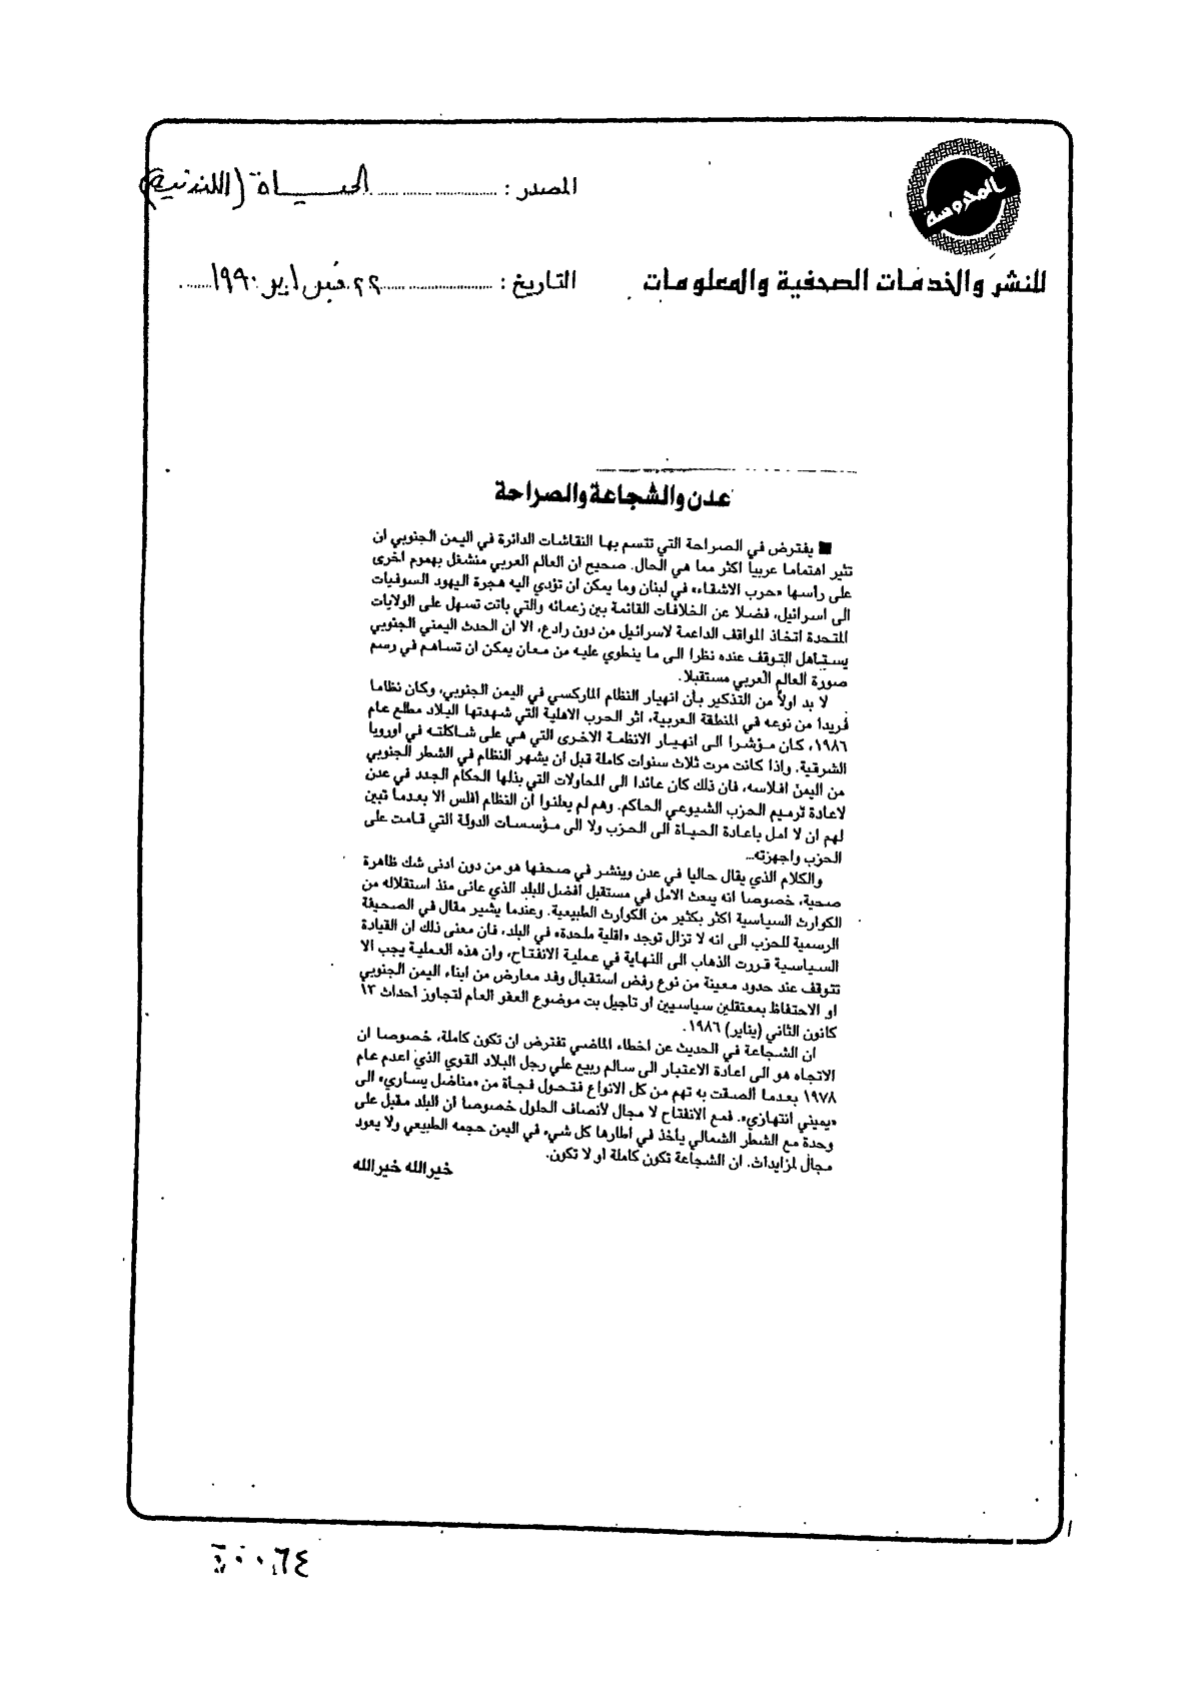 المحروسة
المصدر : الحياة (اللندنية)
للنشر والخدمات الصحفية والمعلومات
التاريخ : ٢٢ فبراير ١٩٩٠
عدن والشجاعة والصراحة
■ يفترض في الصراحة التي تتسم بها النقاشات الدائرة في اليمن الجنوبي ان
تثير اهتماما عربياً اكثر مما هي الحال. صحيح ان العالم العربي منشغل بهموم اخرى
على رأسها «حرب الاشقاء» في لبنان وما يمكن ان تؤدي اليه هجرة اليهود السوفيات
الى اسرائيل، فضلا عن الخلافات القائمة بين زعمائه والتي باتت تسهل على الولايات
المتحدة اتخاذ المواقف الداعمة لاسرائيل من دون رادع، الا ان الحدث اليمني الجنوبي
يستاهل التوقف عنده نظرا الى ما ينطوي عليه من معان يمكن ان تساهم في رسم
صورة العالم العربي مستقبلا.
لا بد اولاً من التذكير بأن انهيار النظام الماركسي في اليمن الجنوبي، وكان نظاما
فريدا من نوعه في المنطقة العربية، اثر الحرب الاهلية التي شهدتها البلاد مطلع عام
١٩٨٦، كان مؤشرا الى انهيار الانظمة الاخرى التي هي على شاكلته في اوروبا
الشرقية. واذا كانت مرت ثلاث سنوات كاملة قبل ان يشهر النظام في الشطر الجنوبي
من اليمن افلاسه، فان ذلك كان عائدا الى المحاولات التي بذلها الحكام الجدد في عدن
لاعادة ترميم الحزب الشيوعي الحاكم. وهم لم يعلنوا ان النظام أفلس الا بعدما تبين
لهم ان لا امل باعادة الحياة الى الحزب ولا الى مؤسسات الدولة التي قامت على
الحزب واجهزته...
والكلام الذي يقال حاليا في عدن وينشر في صحفها هو من دون ادنى شك ظاهرة
صحية، خصوصا انه يبعث الامل في مستقبل افضل للبلد الذي عانى منذ استقلاله من
الكوارث السياسية اكثر بكثير من الكوارث الطبيعية. وعندما يشير مقال في الصحيفة
الرسمية للحزب الى انه لا تزال توجد «اقلية ملحدة» في البلد، فان معنى ذلك ان القيادة
السياسية قررت الذهاب الى النهاية في عملية الانفتاح، وان هذه العملية يجب الا
تتوقف عند حدود معينة من نوع رفض استقبال وفد معارض من ابناء اليمن الجنوبي
او الاحتفاظ بمعتقلين سياسيين او تاجيل بت موضوع العفو العام لتجاوز أحداث ١٣
كانون الثاني (يناير) ١٩٨٦.
ان الشجاعة في الحديث عن اخطاء الماضي تفترض ان تكون كاملة، خصوصا ان
الاتجاه هو الى اعادة الاعتبار الى سالم ربيع علي رجل البلاد القوي الذي اعدم عام
١٩٧٨ بعدما الصقت به تهم من كل الانواع فتحول فجأة من «مناضل يساري» الى
«يميني انتهازي». فمع الانفتاح لا مجال لأنصاف الحلول خصوصا ان البلد مقبل على
وحدة مع الشطر الشمالي يأخذ في اطارها كل شيء في اليمن حجمه الطبيعي ولا يعود
مجال لمزايدات. ان الشجاعة تكون كاملة او لا تكون.
خيرالله خيرالله